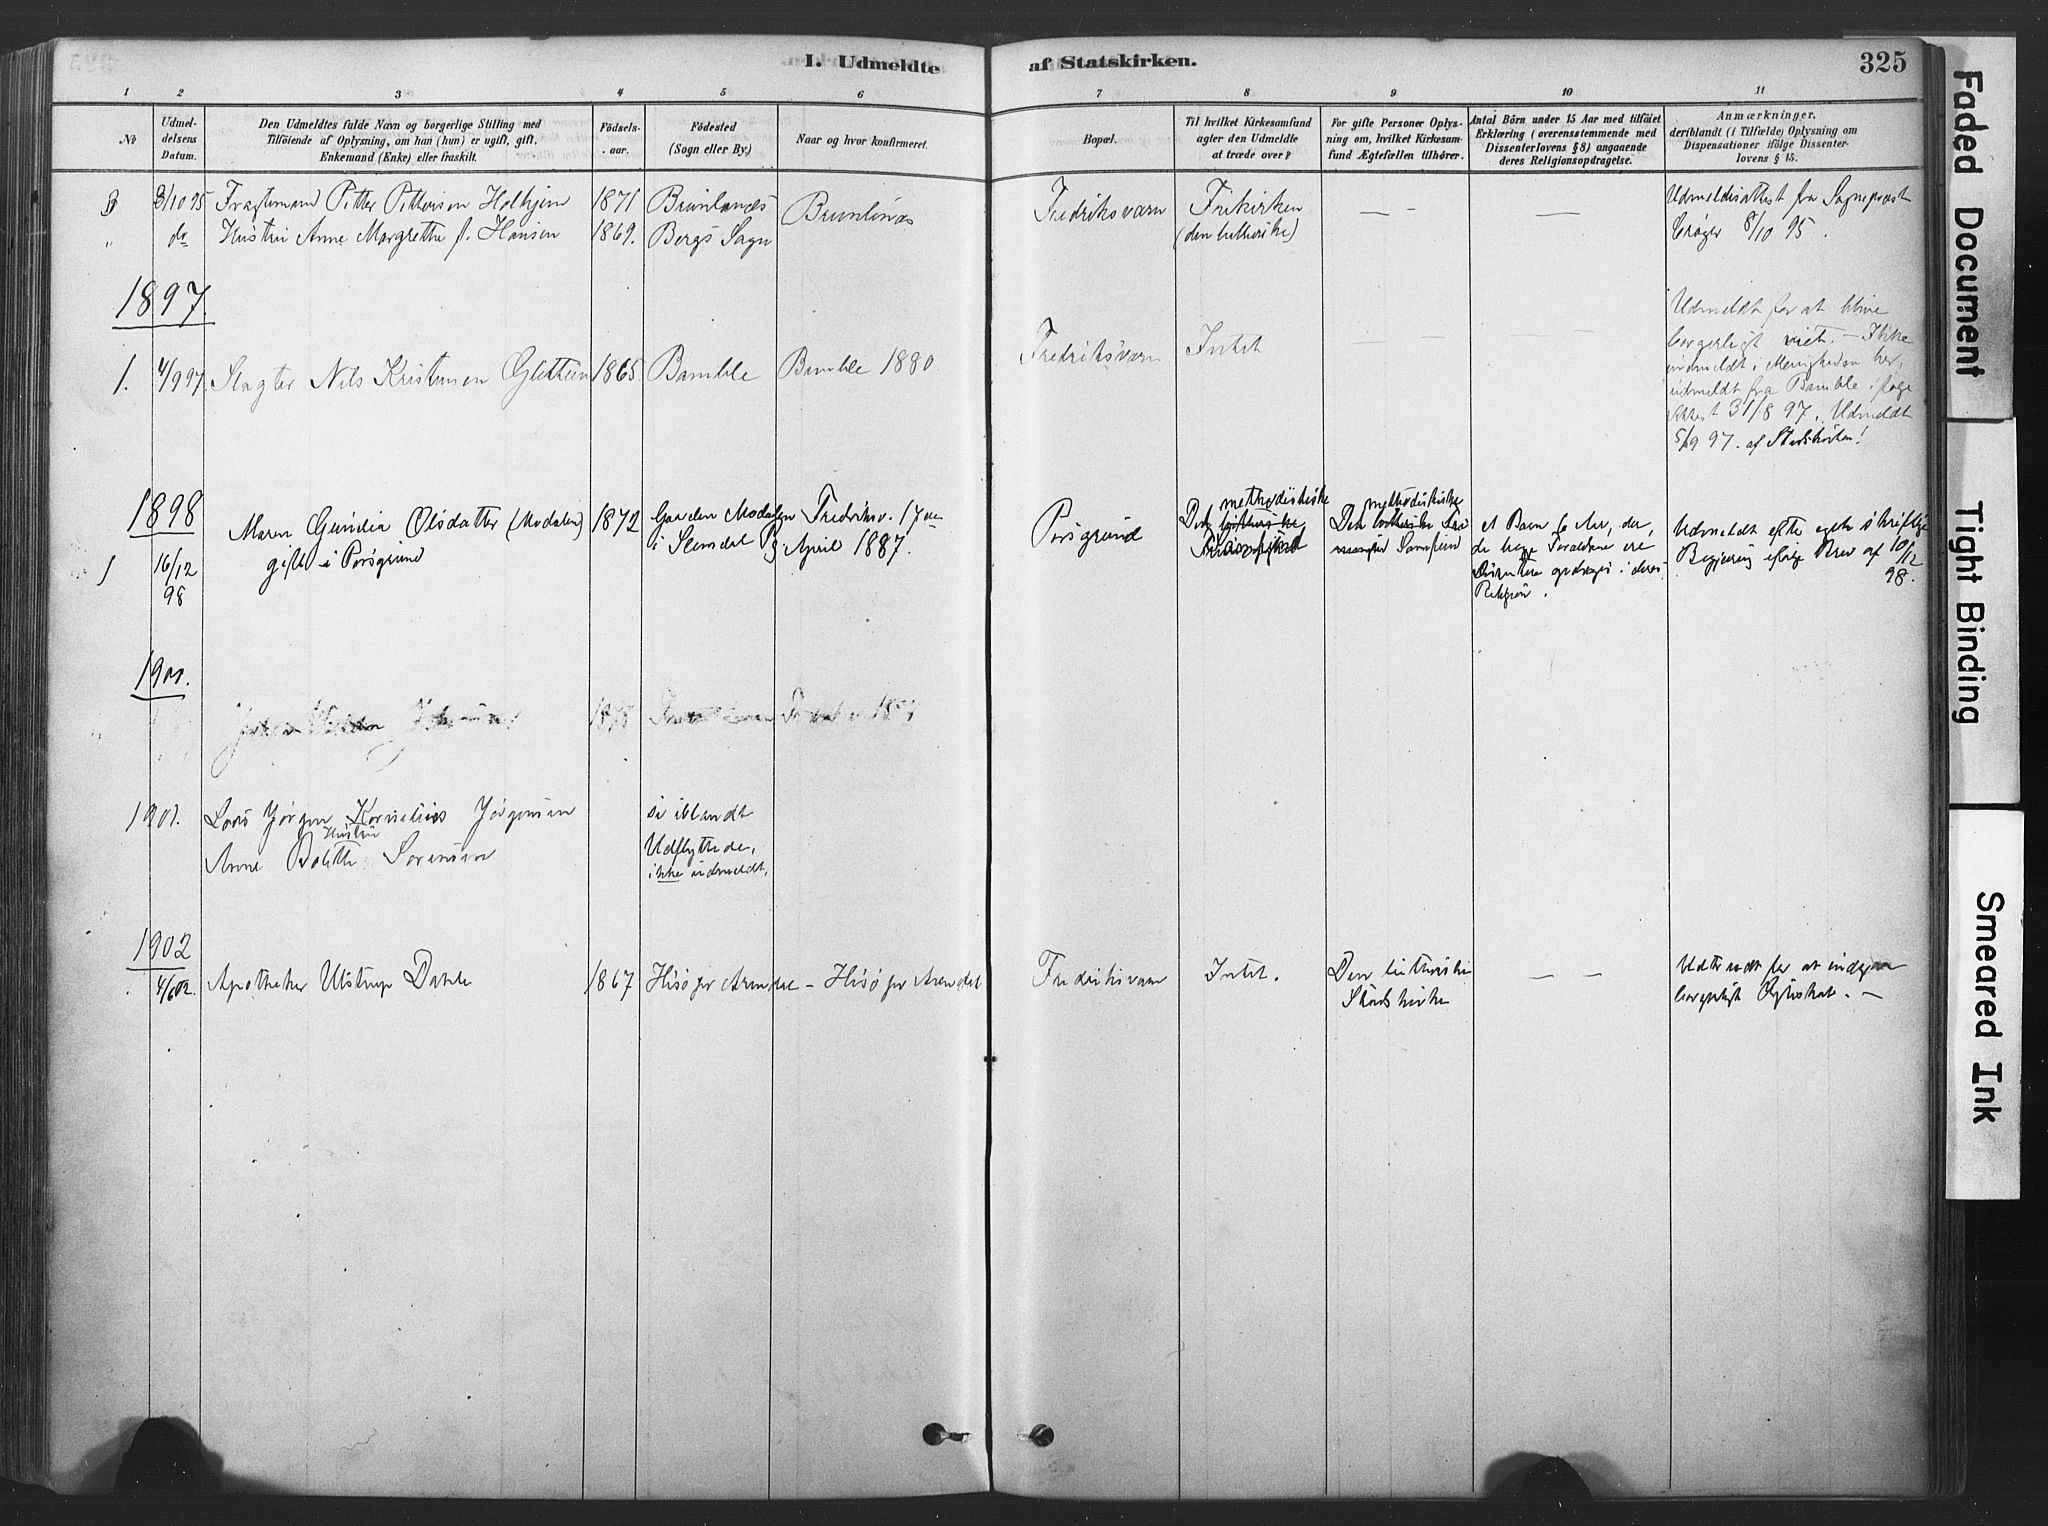 I. Udmeldte af Statskirken. 325
1 2 3 4 5 6 7 8 9 10 11
No
Udmel-
delsens
Datum.
Den Udmeldtes fulde Navn og borgerlige Stilling med
Tilföiende af Oplysning, om han (hun) er ugift, gift,
Enkemand (Enke) eller fraskilt.
Födsels-
aar.
Födested
(Sogn eller By.)
Naar og hvor konfirmeret.
Bopæl.
Til hvilket Kirkesamfund
agter den Udmeldte
at træde over?
For gifte Personer Oplys-
ning om, hvilket Kirkesam-
fund Ægtefællen tilhörer.
Antal Börn under 15 Aar med tilföiet
Erklæring (overensstemmende med
Dissenterlovens § 8) angaaende
deres Religionsopdragelse.
Anmærkninger,
deriblandt (i Tilfælde) Oplysning om
Dispensationer ifölge Dissenter-
lovens § 15.
Fragtemand Petter Pettersen Holhjem 1871 Brunlanæs Brunlanæs Fredriksværn Frikirken — — Udmeldisattest fra Sognepræst
" do Hustru Anne Margrethe f. Hansen 1869. Bergs Sogn (den lutherske) Crøger 8/10 95.
1897.
1. 4/9 97. Slagter Nils Kristensen 1865 Bamble Bamble 1880. Fredriksværn Intet — — — —
Udmeldt for at blive
borgerligt viet. – Ikke
indmeldt i Menigheden her,
udmeldt fra Bamble ifølge
Attest 31/8 97. Udmeldt
5/9 97. af Statskirken!
1898
1 16/12 98
Maren Gunilia Olsdatter (Modalen)
gift i Porsgrund
1872
Gaarden Modalen
i Slemdal Pg.
Fredriksv. 17de
April 1887.
Porsgrund
Det methodistiske
Det methodistiske
Samfund
et Barn 6 Aar, der,
da begge Forældrene ere
Dissentere opdrages i deres
Religion.
Udmeldt efter egen skriftlige
Begjæring ifølge Brev af 10/12
98.
1901. Lars Jørgen Kornelius Jørgensen
Hustru
Anne Bolette Sørensen
se iblandt
Udflyttede,
ikke udmeldt.
1902
4/6 02. Apotheker Ulstrup Dahle 1867 Hisø per Arendal – Hisø per Arendal Fredriksværn Intet. Den lutherske
Statskirke
— —
Udtraadt for at indgaa
borgerligt Ægteskab. –
Faded Document
Tight Binding
Smeared Ink